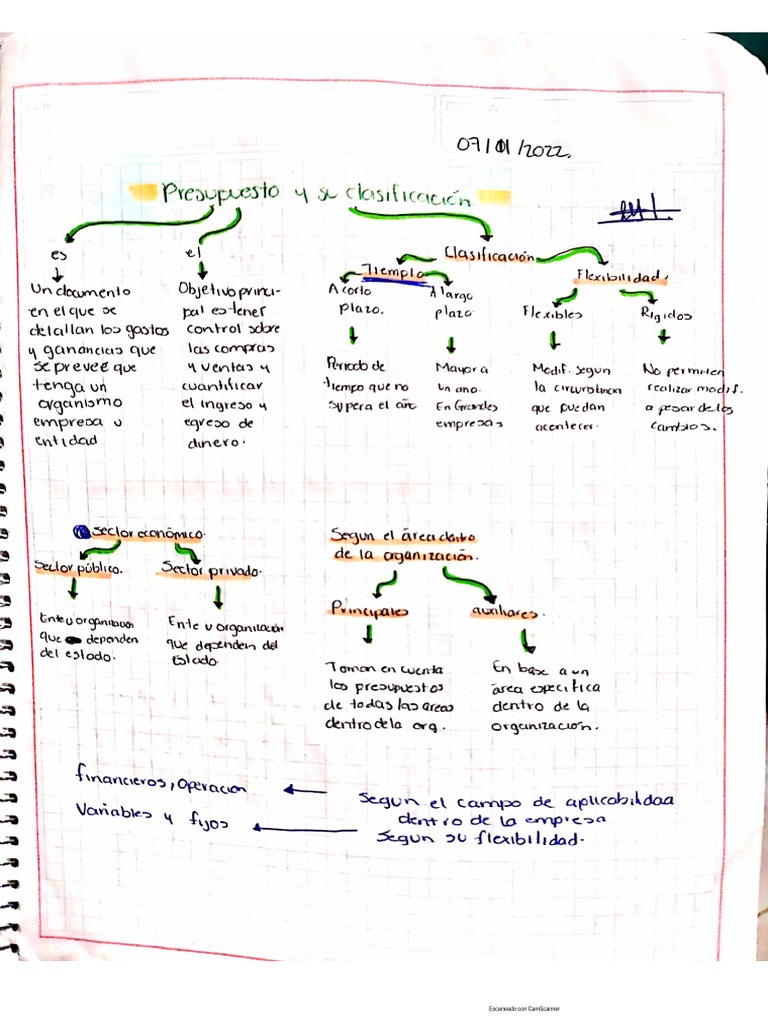 FECHA
07/01/2022.
Presupuesto y su clasificación
es
Un documento
en el que se
detallan los gastos
y ganancias que
se preveé que
tenga un
organismo
empresa u
entidad
el
Objetivo princi-
pal es tener
control sobre
las compras
y ventas y
cuantificar
el ingreso y
egreso de
dinero.
Clasificación
Tiempo
A corto
plazo.
Periodo de
tiempo que no
supera el año
A largo
plazo.
Mayor a
un año.
En Grandes
empresas
Flexibilidad.
Flexibles
Modif. segun
la circunstancia
que puedan
acontecer.
Rigidos
No permiten
realizar modif.
a pesar de los
cambios.
Sector económico.
Sector público.
Ente u organización
que dependen
del estado.
Sector privado.
Ente u organización
que dependen del
Estado.
Segun el área dentro
de la organización.
Principales
Toman en cuenta
los presupuestos
de todas las areas
dentro de la org.
auxiliares.
En base a un
área especifica
dentro de la
organización.
financieros, operación
Segun el campo de aplicabilidad
dentro de la empresa
Variables y fijos
Segun su flexibilidad.
Escaneado con CamScanner